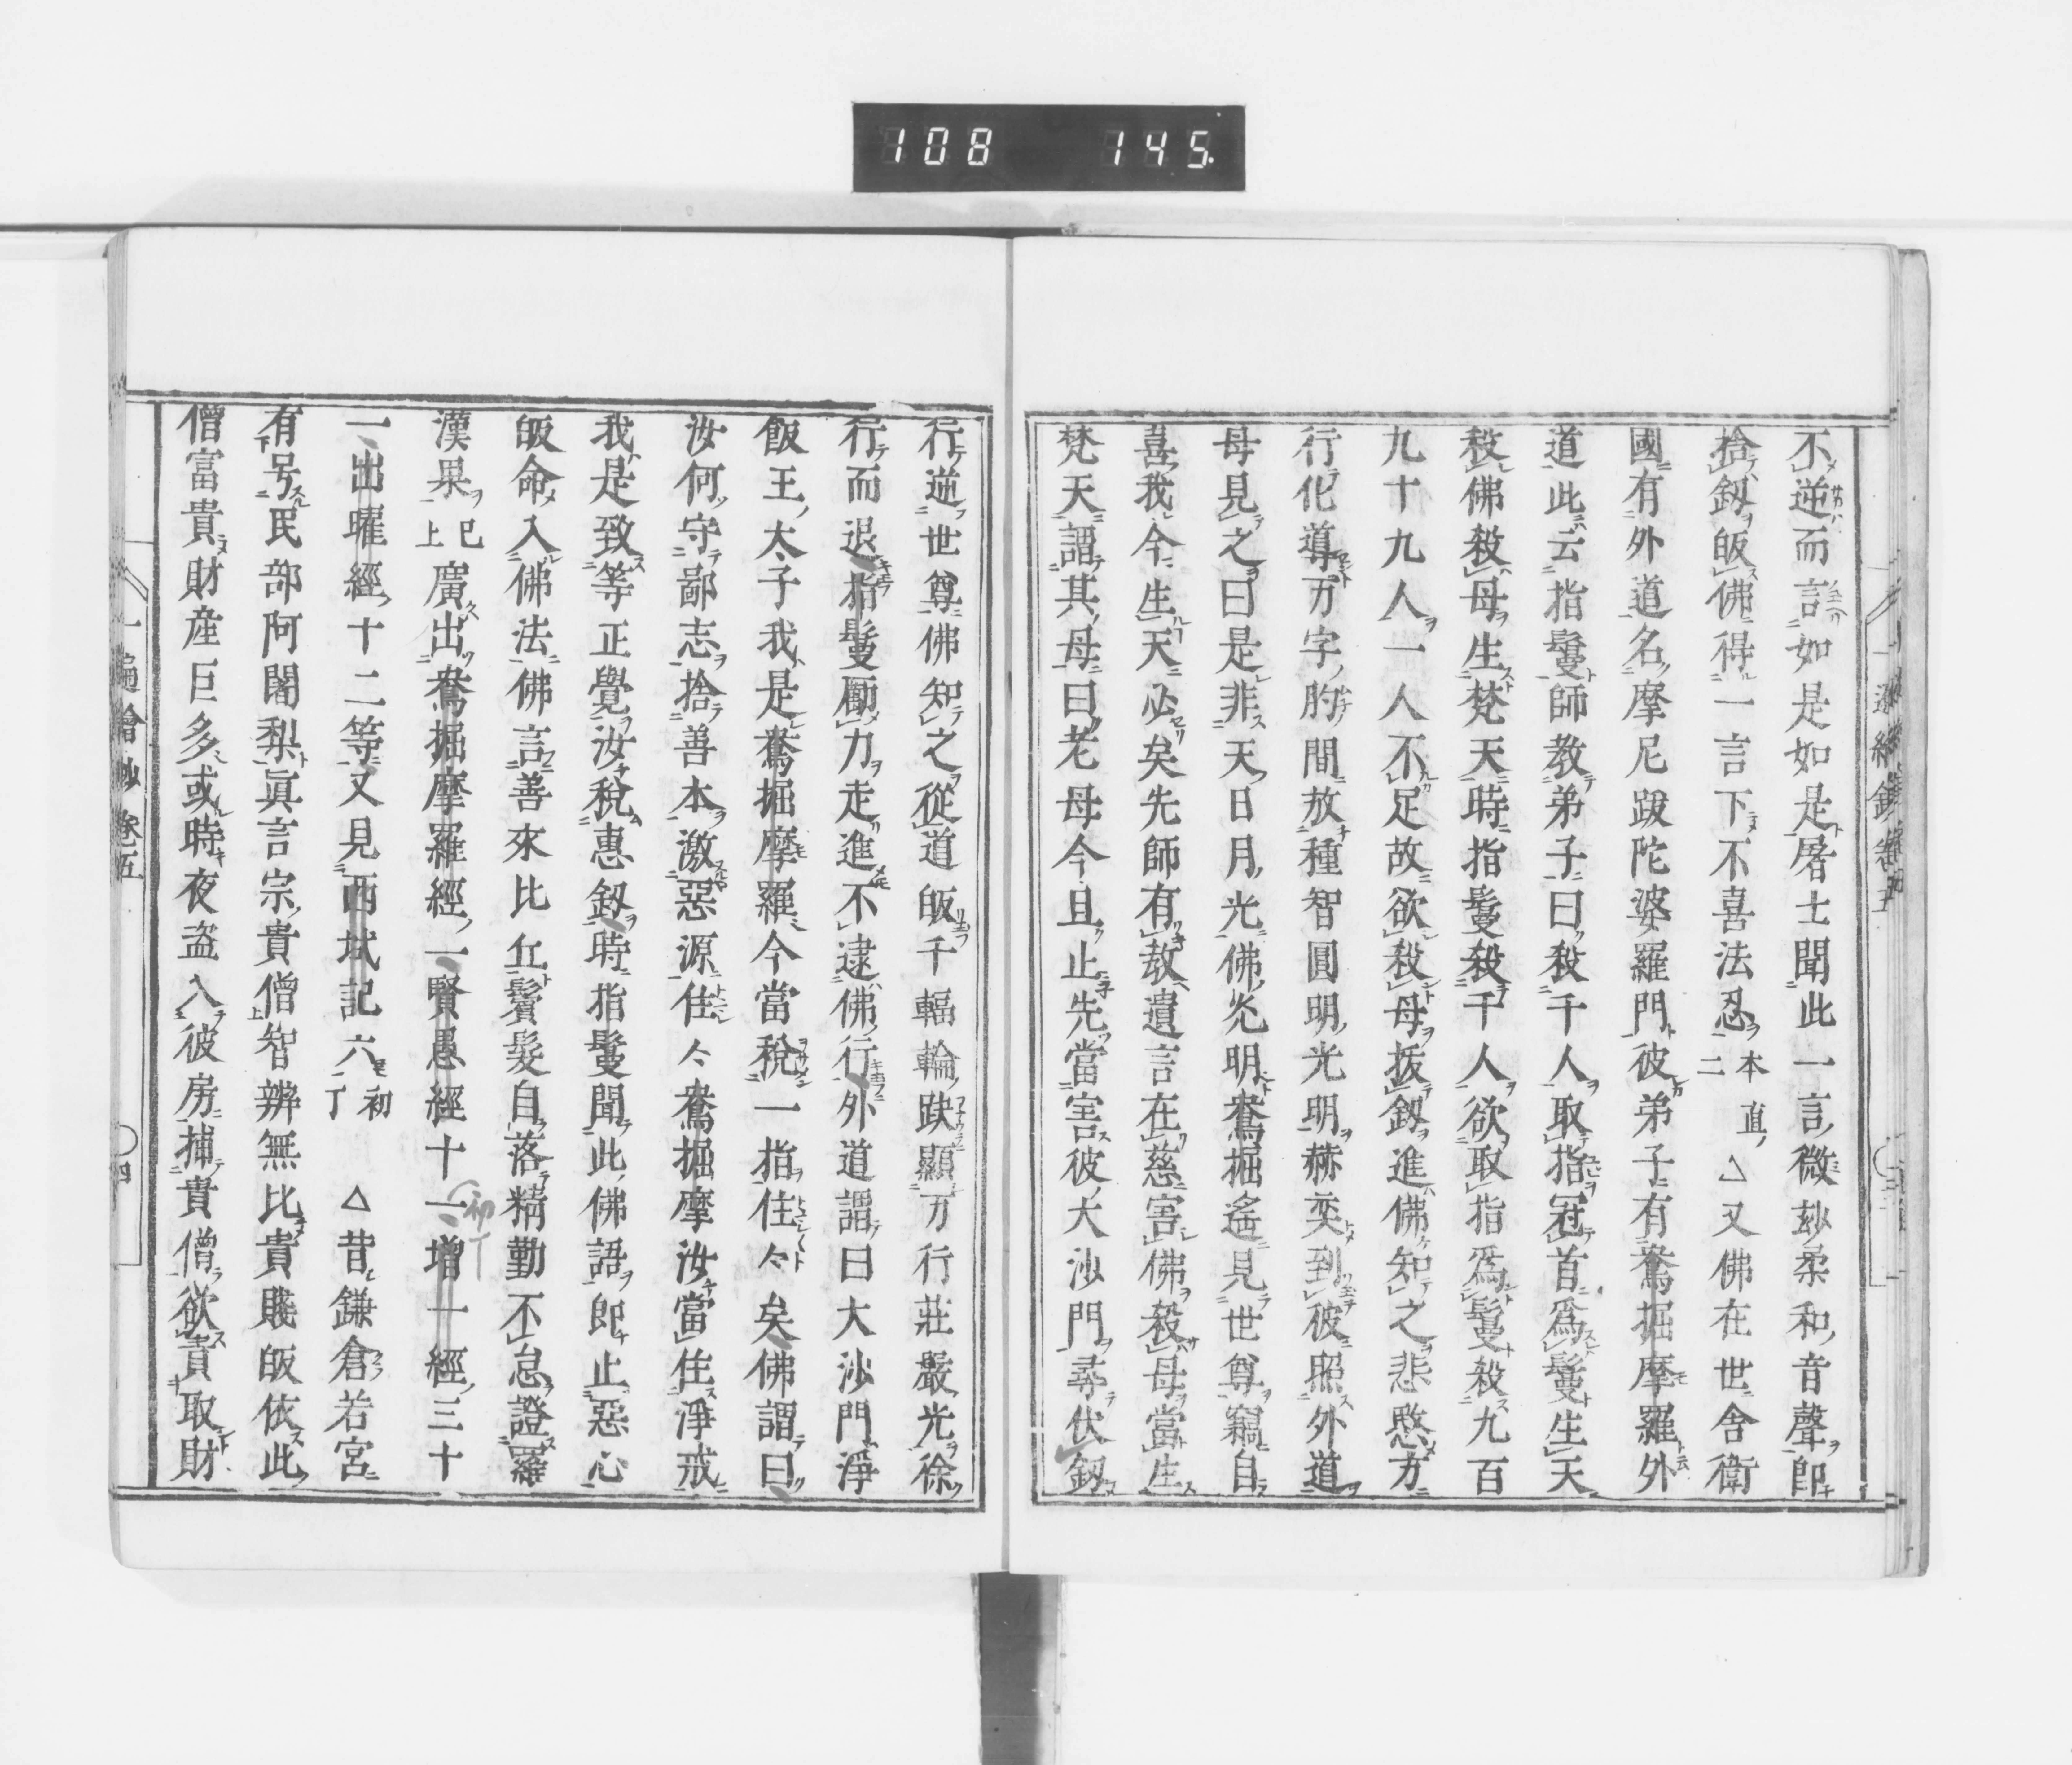 108 145.
不逆而言如是如是屠士聞此一言微玅柔和音聲即
捨釼皈佛得一言下不喜法忍本二直△又佛在世舍衛
國有外道名摩尼跋陀婆羅門彼弟子有鴦掘摩羅外
道此云指鬘師教弟子曰殺千人取指冠首爲鬘生天
殺佛殺母生梵天時指鬘殺千人欲取指爲鬘殺九百
九十九人一人不足故欲殺母拔釼進佛知之悲愍方
行化導万字肑間放種智圓明光明赫奕到彼照外道
母見之曰是非天日月光佛光明鴦掘遙見世尊竊自
喜我今生天必矣先師有教遺言在慈害佛殺母當生
梵天謂其母曰老母今且止先當害彼大沙門尋伏釼
行逆世尊佛知之從道皈千輻輪趺顯万行莊嚴光徐
行而退指鬘勵力走進不逮佛行外道謂曰大沙門淨
飯王太子我是鴦掘摩羅今當稅一指住々矣佛謂曰
汝何守鄙志捨善本激惡源住々鴦掘摩汝當住淨戒
我是致等正覺汝稅惠釼時指鬘聞此佛語即止惡心
皈命入佛法佛言善來比丘鬢髮自落精勤不怠證羅
漢果已上廣出鴦掘摩羅經一賢愚經十一初丁增一經三十
一出曜經十二等又見西域記六初丁△昔鎌倉若宮
有号民部阿闍梨眞言宗貴僧智辨無比貴賤皈依此
僧富貴財産巨多或時夜盗入彼房捕貴僧欲責取財
一遍繪鈔卷五 四